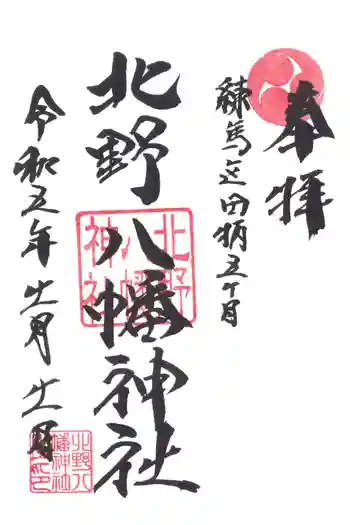 奉拝
練馬区田柄五丁目
北野八幡神社
令和五年十一月十一日
北野
八幡
神社
北野八
幡神社